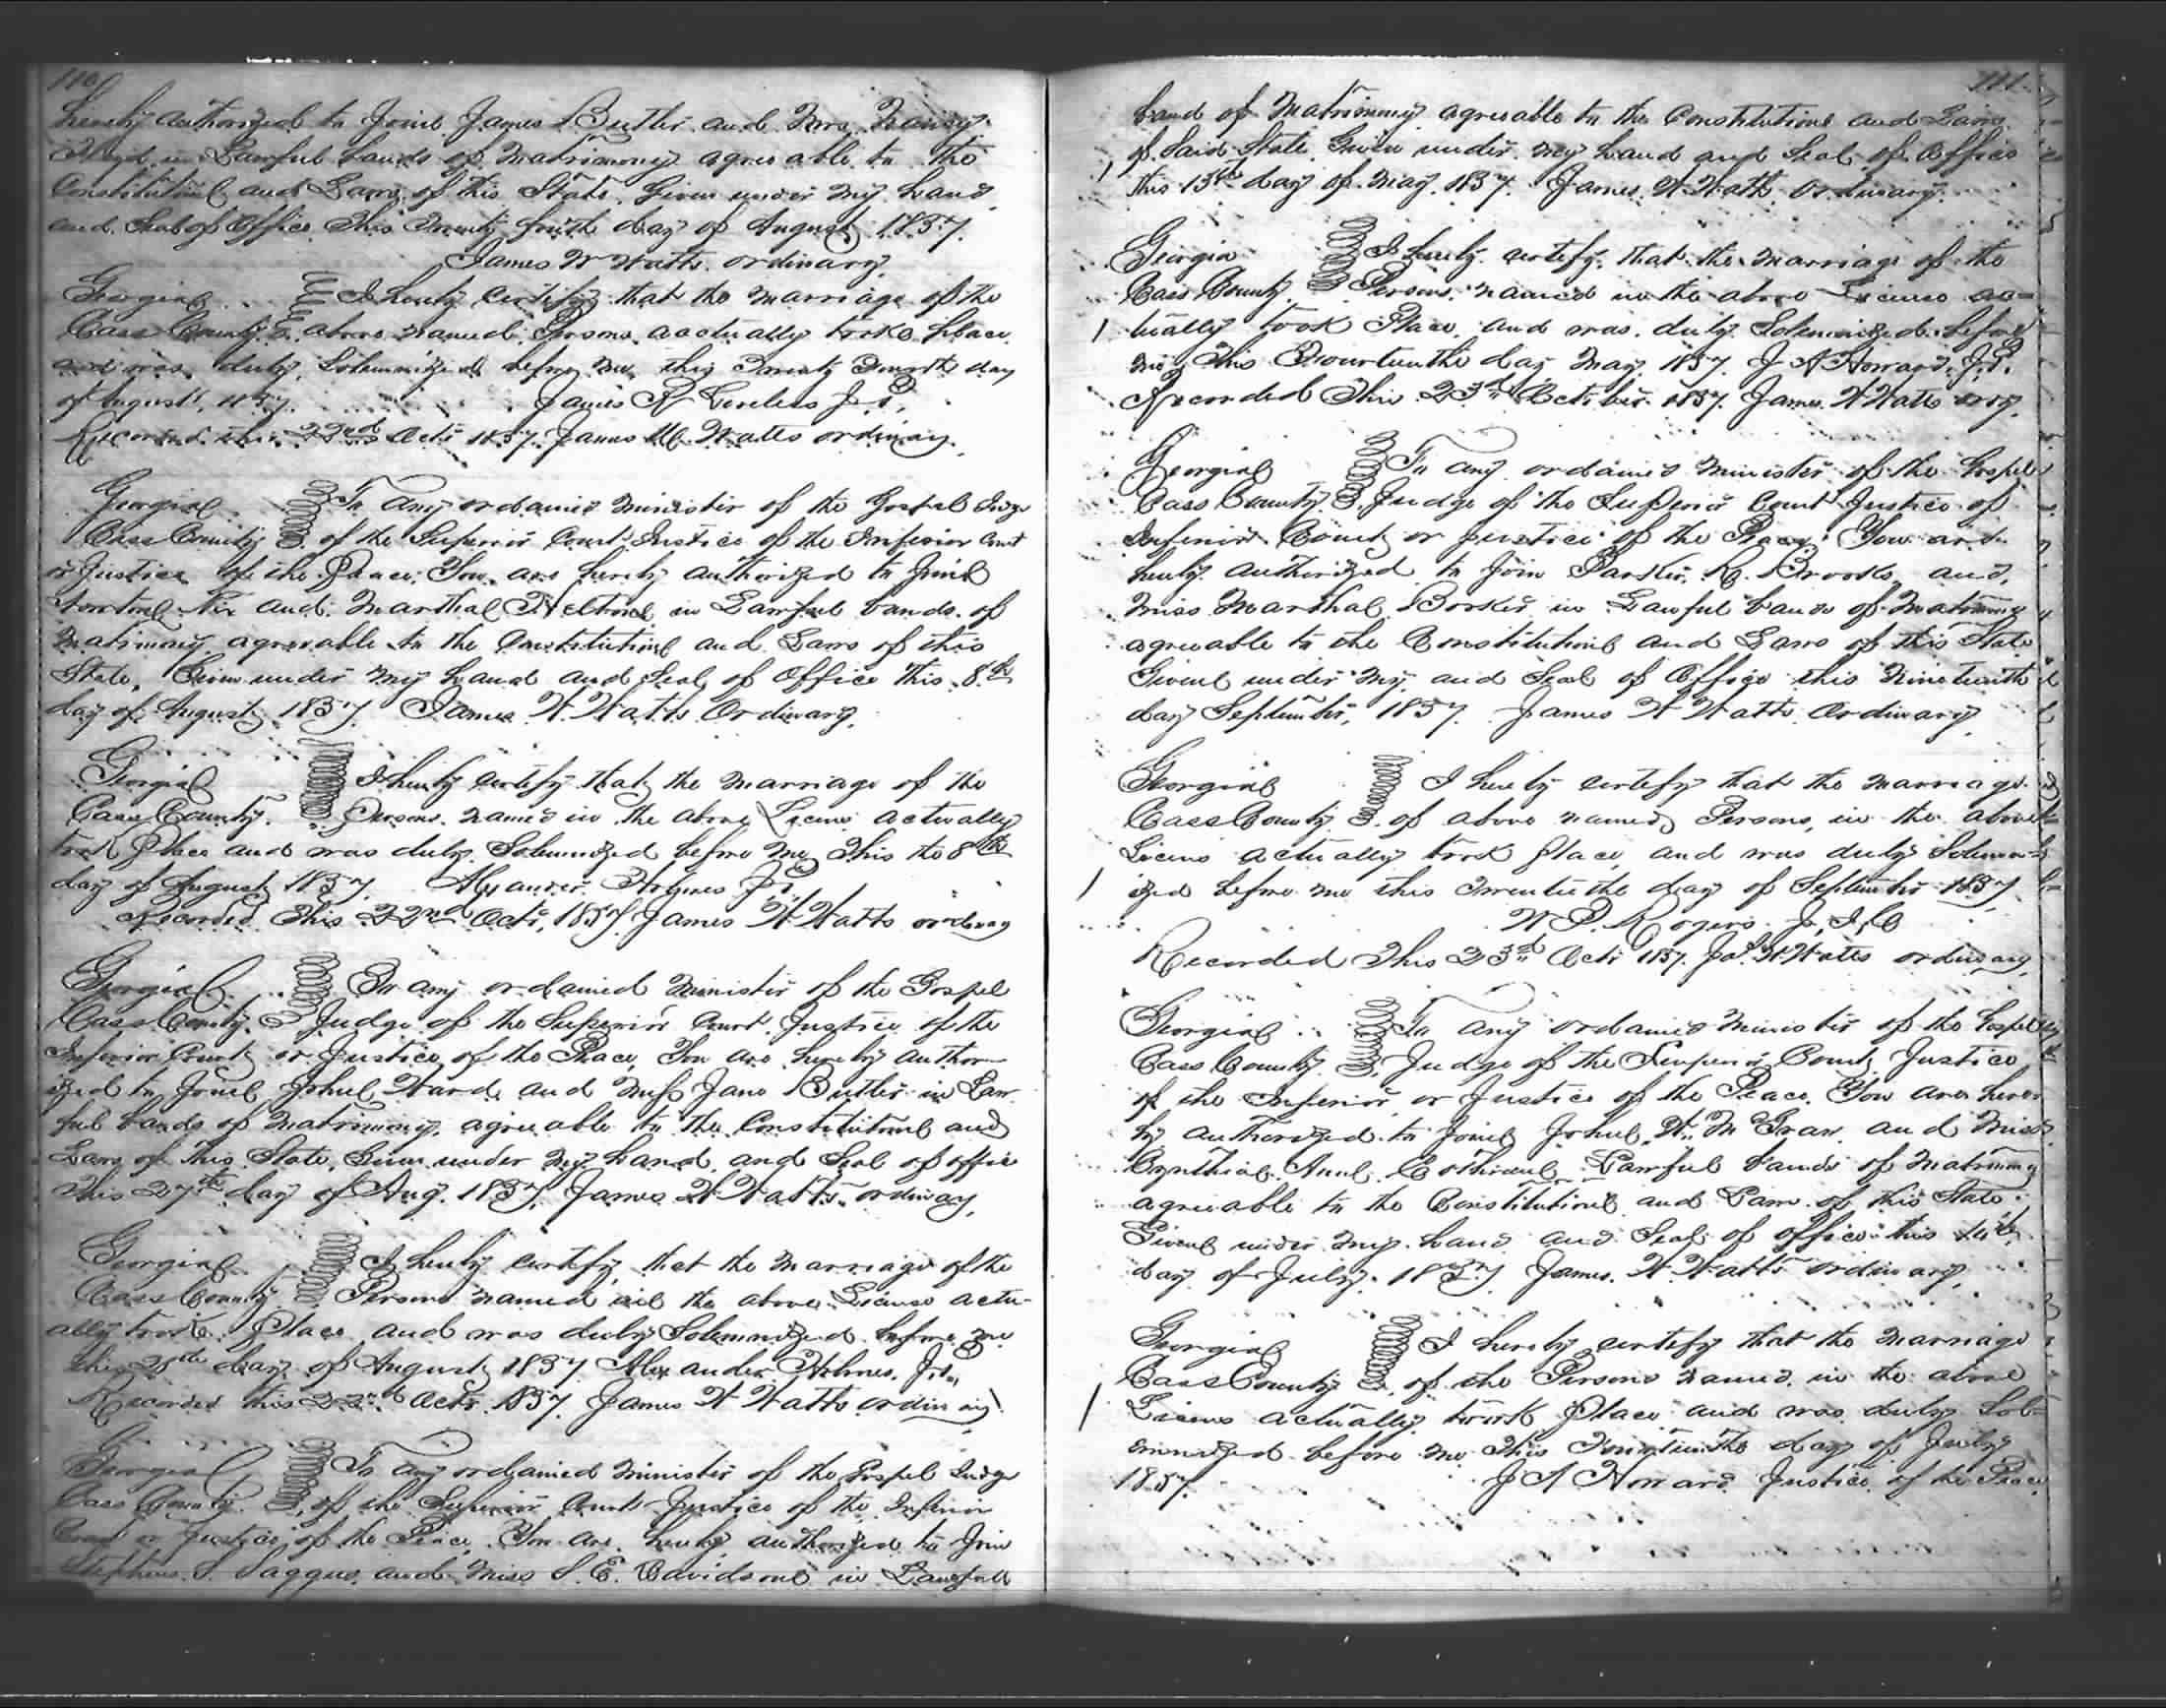 110
hereby authorized to Joine James Butler and Mrs Nancy
in Lawful bands of matrimony agreeable to the
Constitution and Laws of this State. Given under my hand
and Seal of Office This Twenty fourth day of August 1857.
James W Watts ordinary
Georgia I hereby certify that the marriage of the
Cass County above named Persons actually took Place
and was duly Solemnized before me this Twenty Fourth day
of August, 1857. James R J.P.
Recorded this 22nd Octr 1857. James W. Watts ordinary.
Georgia To any ordained minister of the Gospel Judge
Cass County of the Superior Court Justice of the Inferior Court
or Justice of the Peace, You are hereby authorized to Joine
and Martha in Lawful bands of
matrimony agreeable to the Constitution and Laws of this
State. Given under my hand and Seal of Office this 8th
day of August 1857. James W. Watts Ordinary,
Georgia I hereby certify that the marriage of the
Cass County. Persons named in the above License actually
took Place and was duly Solemnized before me This the 8th
day of August 1857. J.P.
Recorded This 22nd Octr, 1857 James W Watts ordinary
Georgia To any ordained minister of the Gospel
Cass County Judge of the Superior Court, Justice of the
Inferior Court or Justice of the Peace, You are hereby author
ized to Joine John Ward and Miss Jane Butler in Law
ful bands of matrimony, agreeable to the Constitution and
Laws of this State, Given under my hand and Seal of office
This 27th day of Aug. 1857, James W Watts ordinary,
Georgia I hereby certify that the marriage of the
Cass County Persons named in the above License actu-
ally took Place and was duly Solemnized before me
the 28th day of August 1857 Alexander Holmes, J.P.
Recorded this 22nd Octr 1857. James W Watts ordinary.
Georgia To any ordained minister of the Gospel Judge
Cass County of the Superior Court Justice of the Inferior
Court or Justice of the Peace You are hereby authorized to Join
Stephen S. Saggus and Miss S. E. Davidson in Lawful
111
band of Matrimony agreeable to the Constitution and Laws
of Said State. Given under my hand and Seal of Office
This 13th day of May. 1857. James W. Watts Ordinary.
Georgia I hereby certify that the marriage of the
Cass County. Persons named in the above License ac-
tually took Place, and was duly Solemnized before
me This Fourteenth day May 1857. J A Howard, J.P.
Recorded This 23rd October 1857. James W Watts ordy.
Georgia To any ordained minister of the Gospel
Cass County Judge of the Superior Court Justice of
Inferior Court or justice of the Peace, You are
hereby authorized to Join Parker R. Brooks and,
Miss Martha in Lawful bands of matrimony
agreeable to the Constitution and Laws of this State
Given under my and Seal of Office this Nineteenth
day September, 1857. James W Watts Ordinary,
Georgia I hereby certify that the marriage
Cass County of above named Persons, in the above
License actually took place, and was duly Solemn-
ized before me this Twentieth day of September 1857,
W P. Rogers J.I.C
Recorded This 23rd Octr 1857. Jas. W Watts ordinary,
Georgia To any ordained minister of the Gospel
Cass County Judge of the Superior Court Justice
of the Inferior or Justice of the Peace. You are here-
by authorized to Joine John W. and Miss
Cynthia Ann Lawful bands of matrimony
agreeable to the Constitution and Laws of this State.
Given under my hand and Seal of office this
day of July. 1857. James. W Watts ordinary,
Georgia I hereby certify that the marriage
Cass County of the Persons named in the above
License actually took Place and was duly Sol-
emnized before me This Fourteenth day of July
1857. J A Howard Justice of the Peace